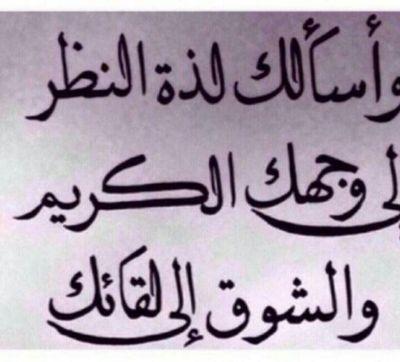 وأسألك لذة النظر
إلى وجهك الكريم
والشوق إلى لقائك